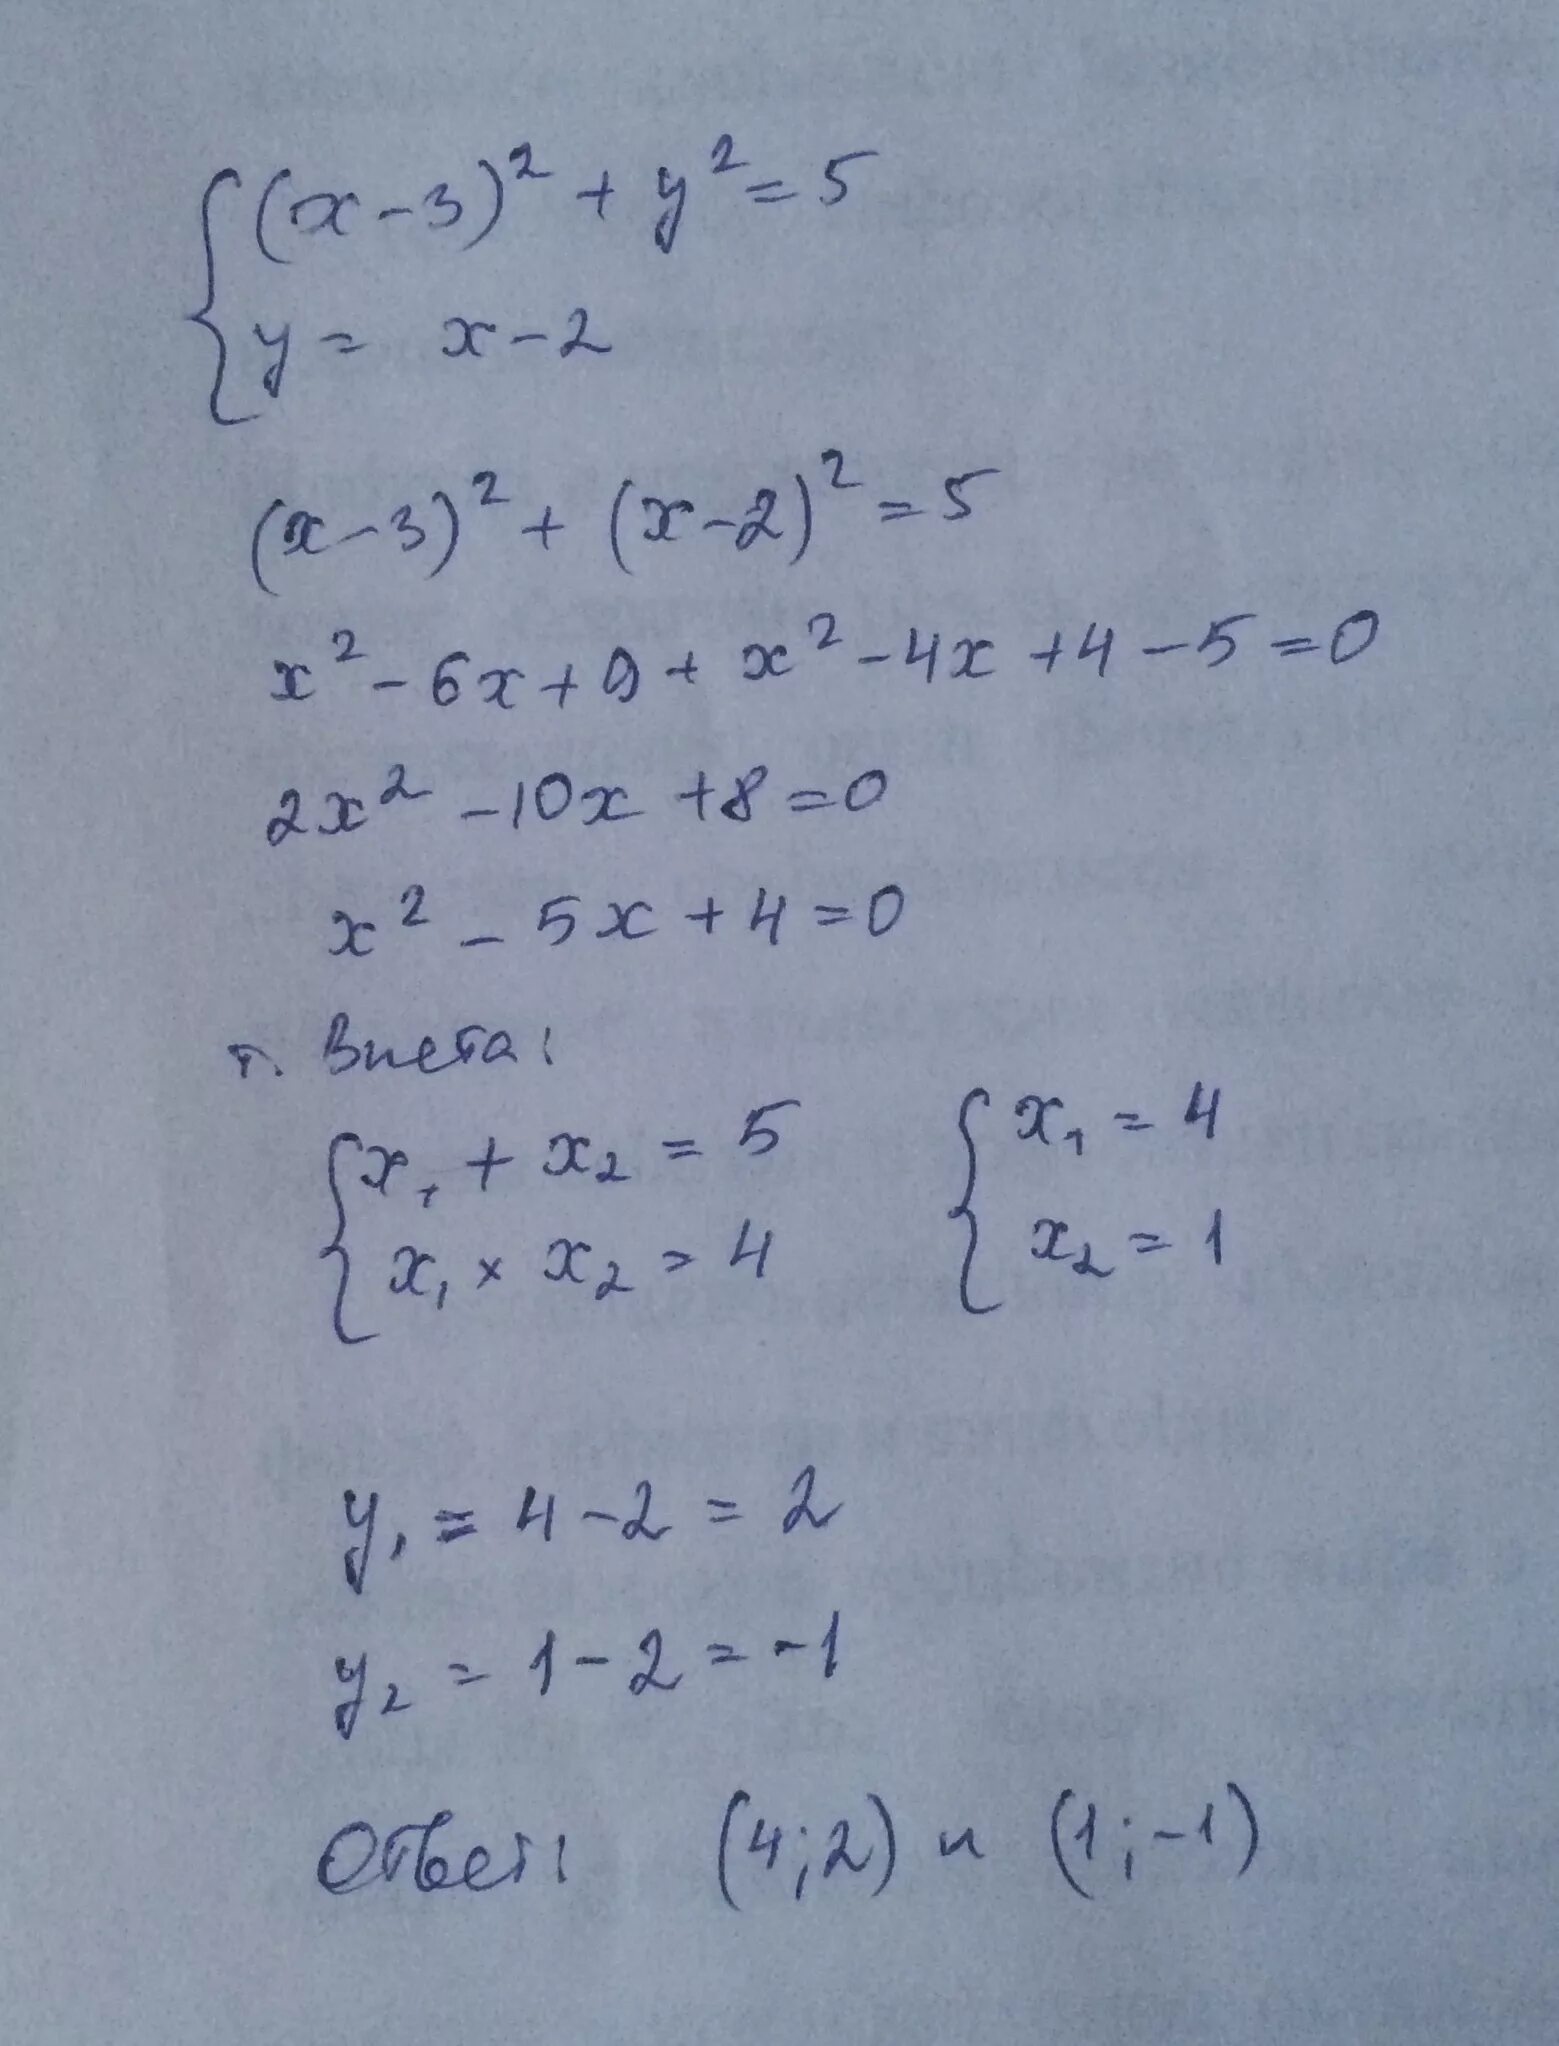 { (x-3)² + y² = 5
y = x-2
(x-3)² + (x-2)² = 5
x² - 6x + 9 + x² - 4x + 4 - 5 = 0
2x² - 10x + 8 = 0
x² - 5x + 4 = 0
т. Виета:
{ x₁ + x₂ = 5 { x₁ = 4
x₁ × x₂ = 4 x₂ = 1
y₁ = 4 - 2 = 2
y₂ = 1 - 2 = -1
Ответ: (4; 2) и (1; -1)